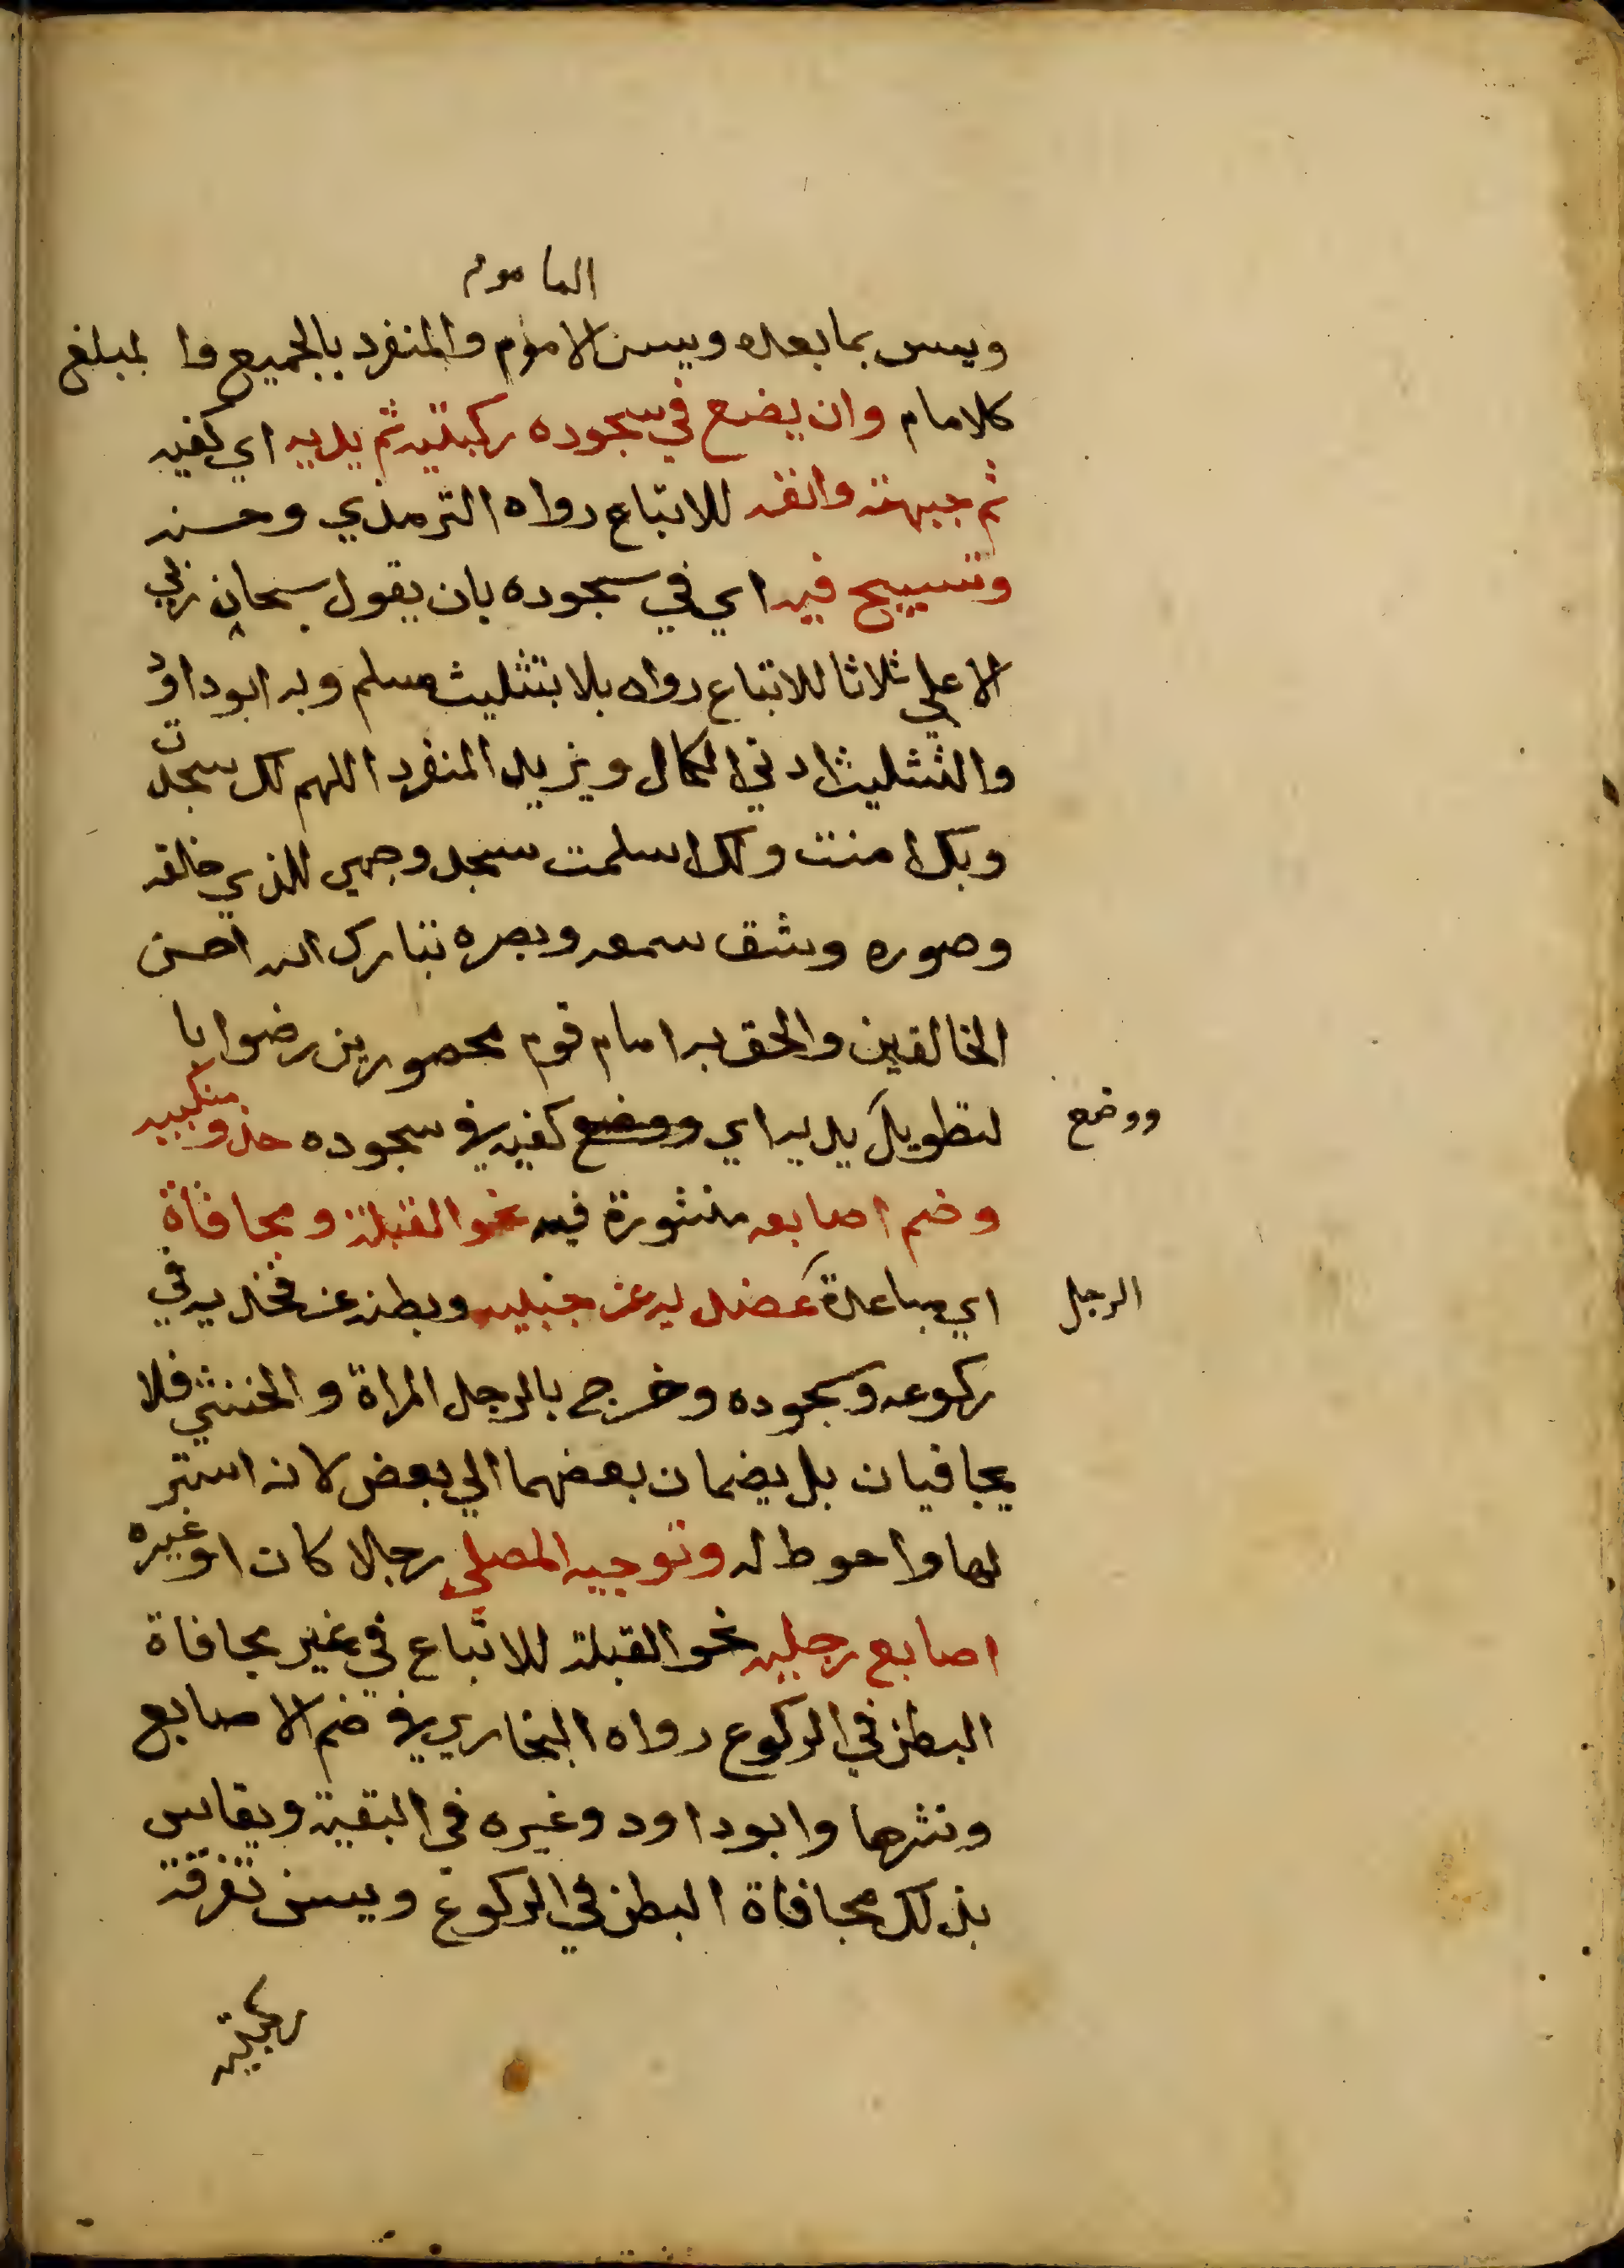 الماموم
ويسر بما بعده ويسر الاموم والمنفرد بالجميع وا لمبلغ
كالامام وان يضع في سجوده ركبتيه ثم يديه اي كفيه
ثم جبهته وانفه للاتباع رواه الترمذي وحسنه
وتسبيح فيه اي في سجوده بان يقول سبحان ربي
الاعلي ثلاثا للاتباع رواه بلا بتثليث مسلم وبه ابوداؤد
والتثليث ادني الكمال ويزيد المنفرد اللهم لك سجدت
وبك امنت ولك اسلمت سجد وجهي للذي خالقه
وصوره وشق سمعه وبصره تبارك الله احسن
الخالقين والحق به امام قوم محصورين رضوا با
لتطويل يديه اي ووضع كفيه في سجوده حذو منكبيه
ووضع
وضم اصابعه منثورة فيه نحو القبلة ومجافاة
اي مباعدة عضديه عن جنبيه وبطنه عن فخذيه في
الرجل
ركوعه وسجوده وخرج بالرجل المراة والخنثي فلا
يجافيان بل يضمان بعضهما الي بعض لانه استر
لها واحوط له وتوجيه المصلي رجلا كان او غيره
اصابع رجليه نحو القبلة للاتباع في غير مجافاة
البطن في الركوع رواه البخاري في ضم الاصابع
ونثرها وابوداود وغيره في البقية ويقاس
بذلك مجافاة البطن في الركوع ويسن تفرقة
ركبتيه